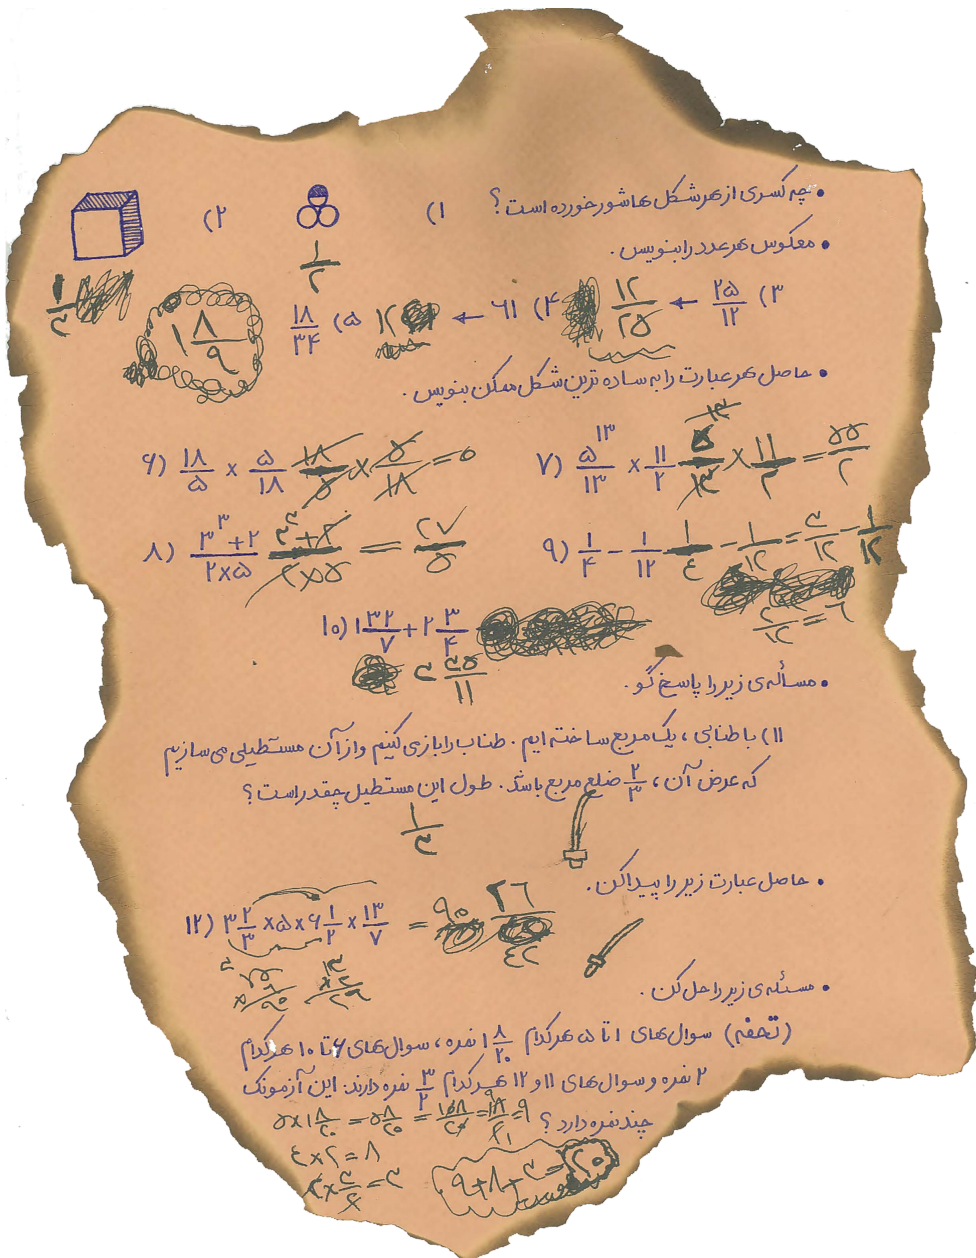 • چه کسری از هر شکل هاشور خورده است؟ ۱) ۲)
۱/۲ ۱/۲
• معکوس هر عدد را بنویس.
۳) ۲۵/۱۲ ← ۱۲/۲۵ ۴) ۶۱ ← ۱۲ ۵) ۱۸/۳۴ ۱ ۸/۹
• حاصل هر عبارت را به ساده ترین شکل ممکن بنویس.
۶) ۱۸/۵ × ۵/۱۸ ۱۸/۵ × ۵/۱۸ = ۰ ۷) ۵^۱۳/۱۳ × ۱۱/۲ ۵^۱۳/۱۳ × ۱۱/۲ = ۵۵/۲
۸) (۳^۳+۲)/(۲×۵) (۳^۳+۲)/(۲×۵) = ۲۷/۵ ۹) ۱/۴ - ۱/۱۲ ۱/۴ - ۱/۱۲ = ۳/۱۲ - ۱/۱۲
۲/۱۲ = ۶
۱۰) ۱ ۳۲/۷ + ۲ ۳/۴
۳ ۳۵/۱۱
• مسأله ی زیر را پاسخ گو.
۱۱) با طنابی، یک مربع ساخته ایم. طناب را باز می کنیم و از آن مستطیلی می سازیم
که عرض آن، ۲/۳ ضلع مربع باشد. طول این مستطیل چقدر است؟
۱/۳
• حاصل عبارت زیر را پیدا کن.
۱۲) ۳ ۲/۳ × ۵ × ۶ ۱/۲ × ۱۳/۷ = ۹۰ ۲۶/۴۲
• مسئله ی زیر را حل کن.
(تحفه) سوال های ۱ تا ۵ هرکدام ۱ ۸/۲۰ نمره، سوال های ۶ تا ۱۰ هرکدام
۲ نمره و سوال های ۱۱ و ۱۲ هرکدام ۳/۲ نمره دارند. این آزمونک
چند نمره دارد؟
۵×۱ ۸/۲۰ = ۵ ۸/۲۰ = ۱۰۸/۲۰ = ۱۸/۲ = ۹
۴×۲=۸
۲×۳/۲=۳
۹+۸+۳=۲۰